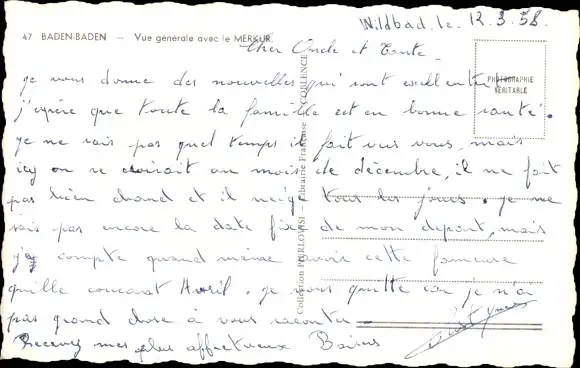 Wildbad le 12.3.58
47 BADEN-BADEN — Vue générale avec le MERKUR.
Cher Oncle et Tante
PHOTOGRAPHIE
VÉRITABLE
je vous donne des nouvelles qui sont excellentes,
j'espère que toute la famille est en bonne santé.
Je ne sais pas quel temps il fait vers vous, mais
icy on se croirait au mois de décembre, il ne fait
pas bien chaud et il neige tous les jours. je ne
sais pas encore la date fixe de mon depart, mais
j'y compte quand même avoir cette fameuse
quille courant Avril. je vous quitte car je n'ai
pas grand chose à vous raconter.
Recevez mes plus affectueux Baisers
Collection PIERLOVISI — Librairie Française — COBLENCE